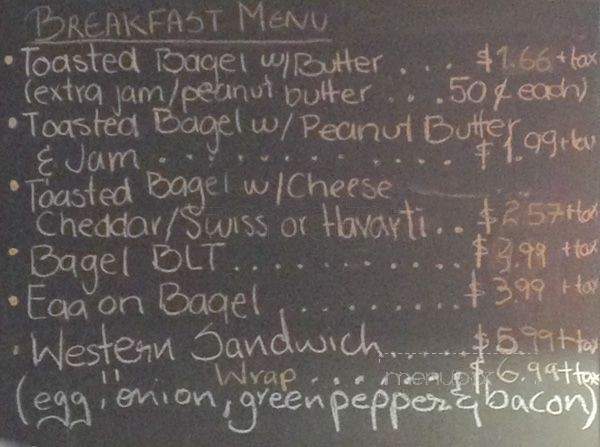 BREAKFAST MENU
• Toasted Bagel w/Butter . . . $1.66 + tax
(extra jam/peanut butter . . . .50 ¢ each)
• Toasted Bagel w/ Peanut Butter
& Jam . . . . . . . . . . . . $1.99 + tax
• Toasted Bagel w/Cheese
Cheddar/Swiss or Havarti . . $2.57 + tax
• Bagel BLT . . . . . . . . . . . . $3.99 + tax
• Egg on Bagel . . . . . . . . . $3.99 + tax
• Western Sandwich $5.99 + tax
" Wrap . . . . . . . $6.99 + tax
(egg, onion, green pepper & bacon)